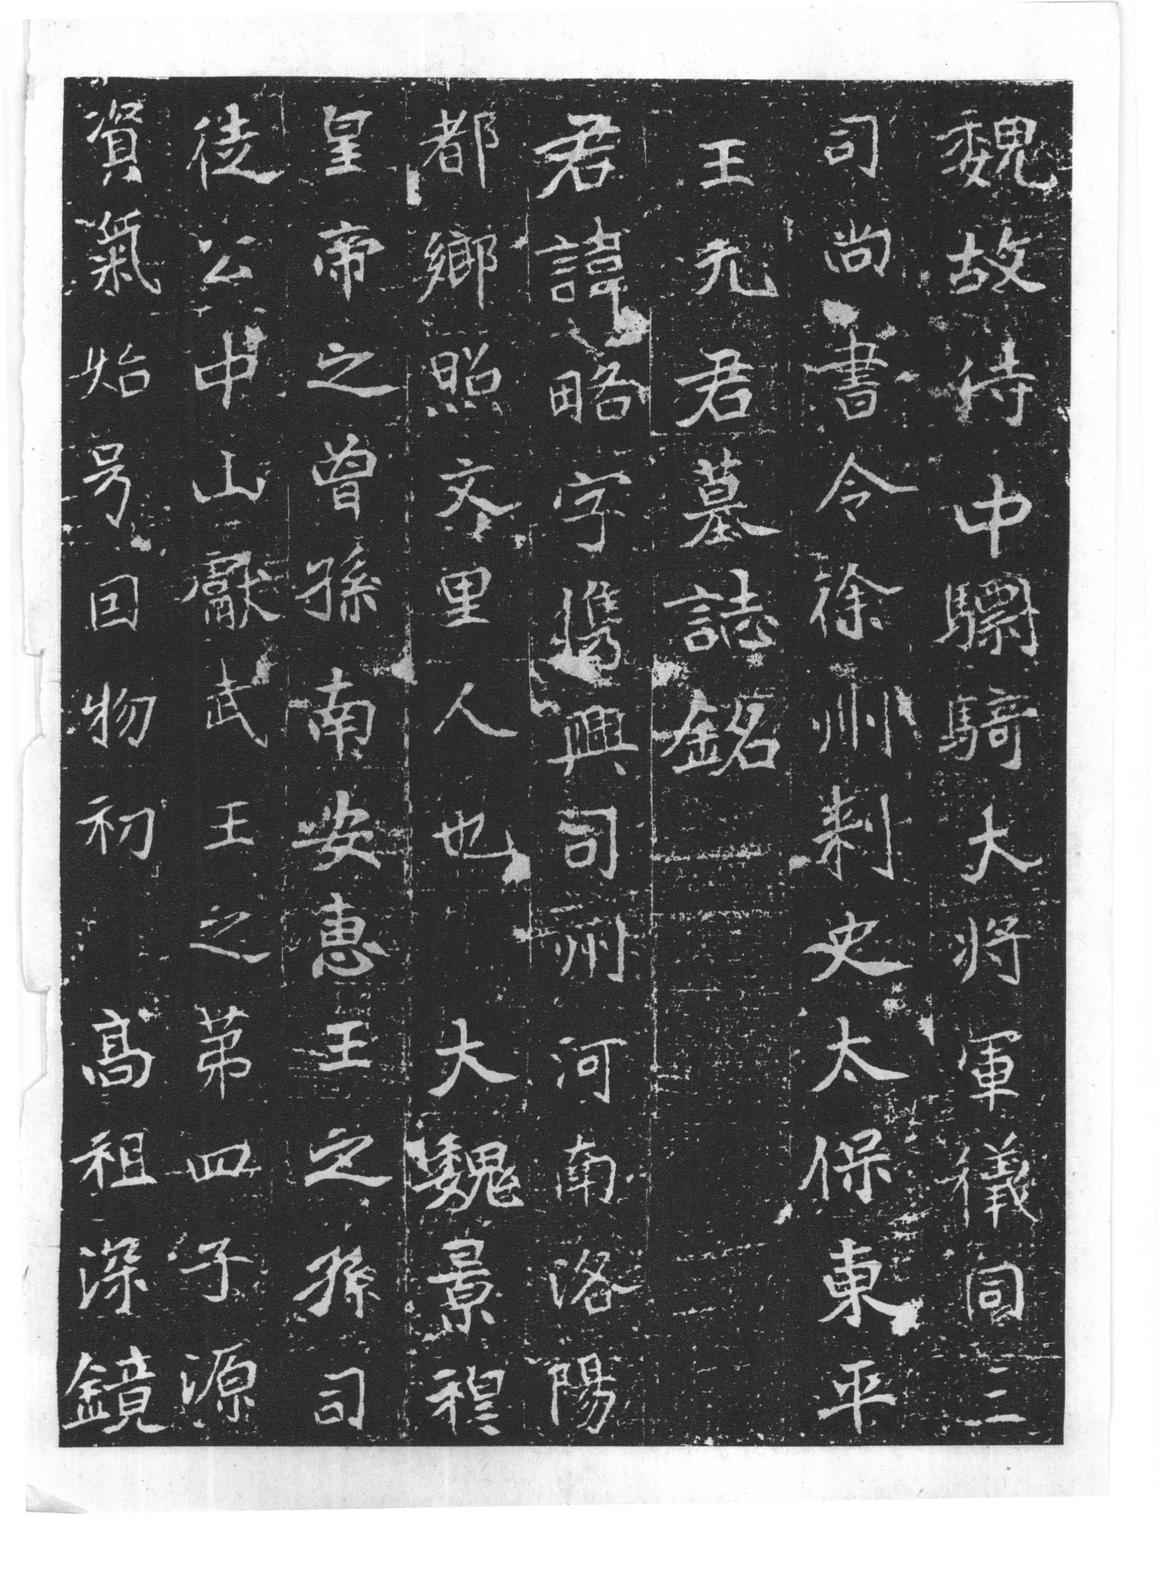 魏故侍中驃騎大將軍儀同三
司尚書令徐州刾史太保東平
王元君墓誌銘
君諱略字儁興司州河南洛陽
都鄉照文里人也大魏景穆
皇帝之曾孫南安惠王之孫司
徒公中山獻武王之苐四子源
資氣始号回物初高祖深鏡